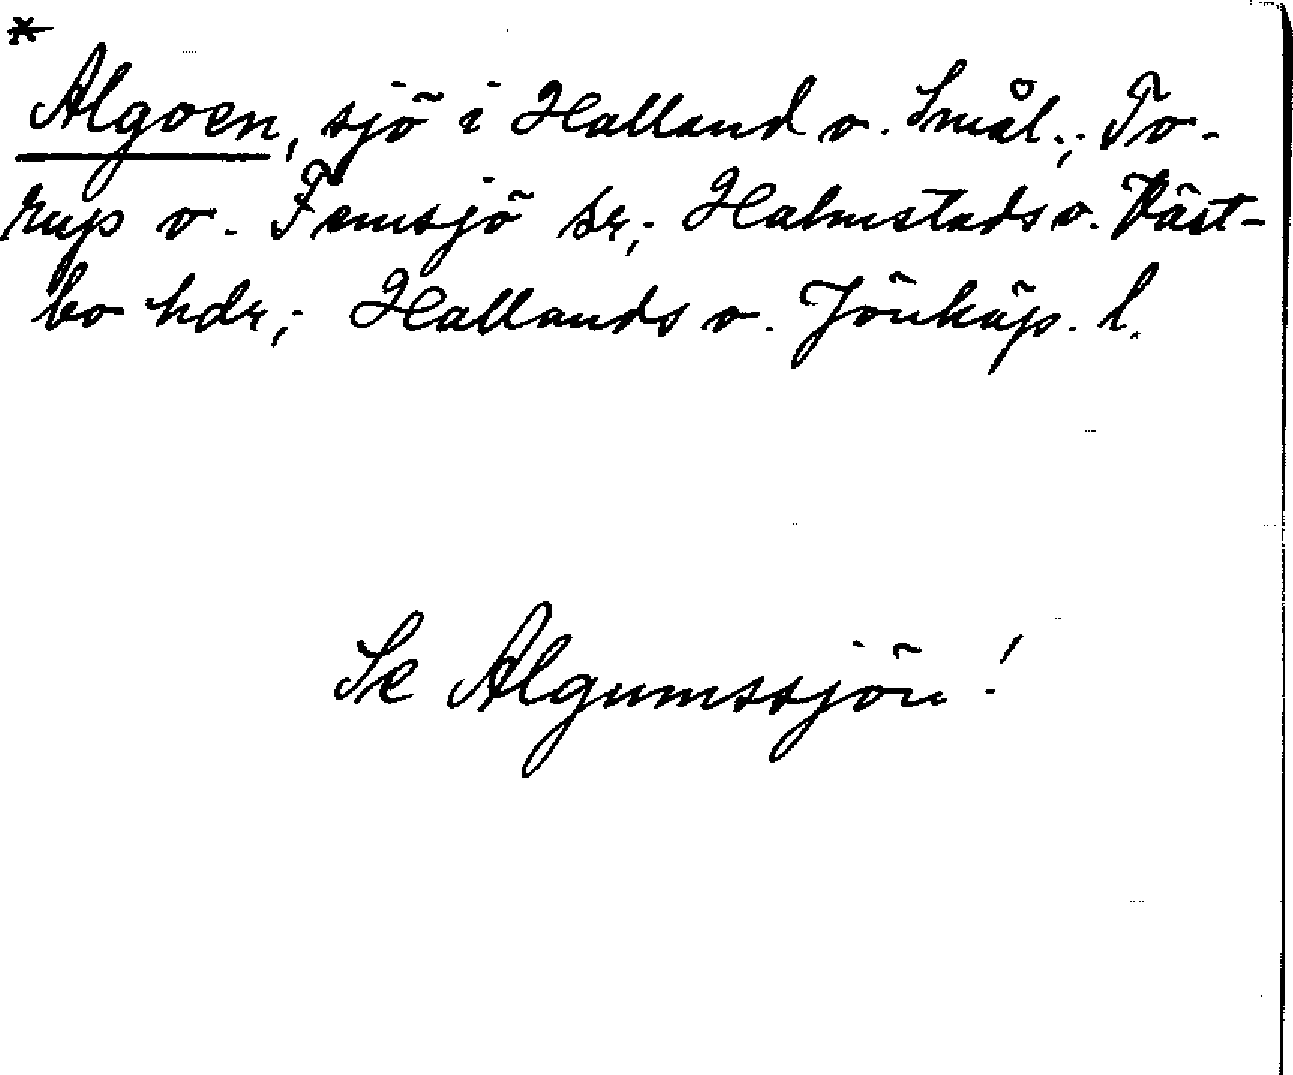 *
Algoen, sjö i Halland o. Smål.; To-
rup o. Femsjö sr,; Halmstads o. Väst-
bo hdr,; Hallands o. Jönköp. l.
Se Algumssjön!